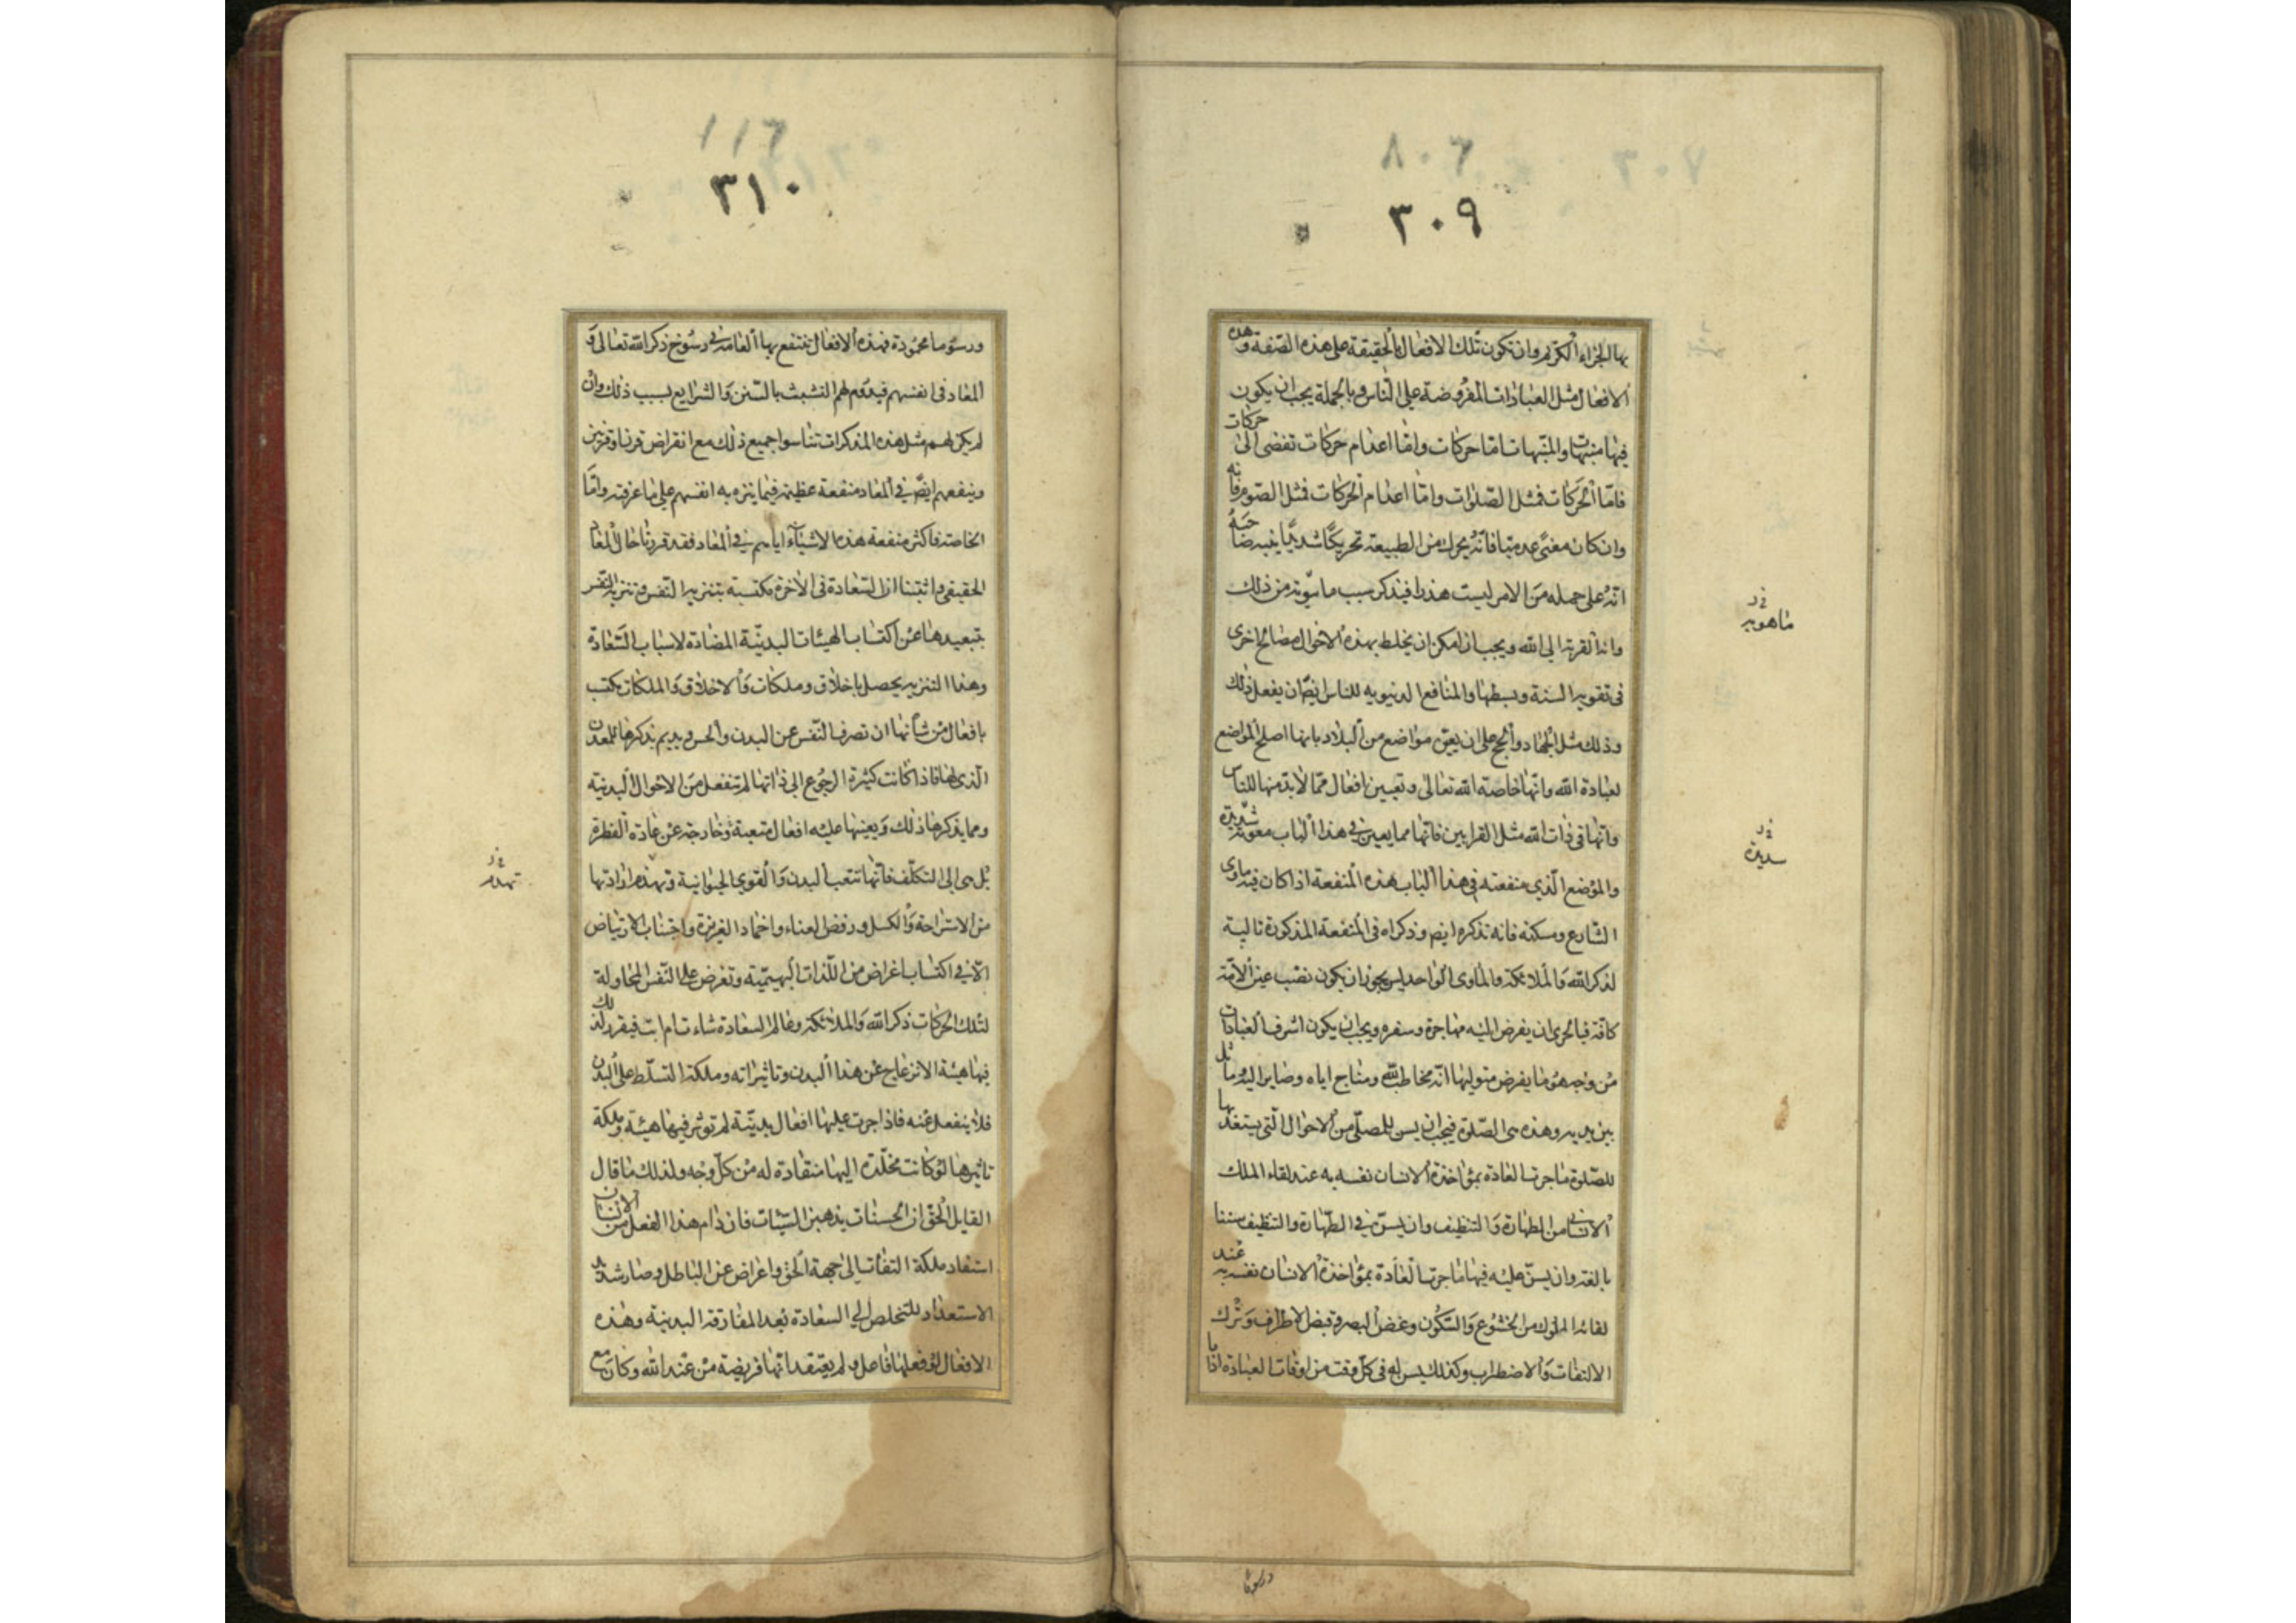 ٣٠٩
بها الجزاء الكريم وان تكون تلك الافعال بالحقيقة على هذه الصفة وهذه
الافعال مثل العبادات المفروضة على الناس وبالجملة يجب ان يكون
فيها منبهات والمنبهات اما حركات واما اعدام حركات تفضى الى حركات
فاما الحركات فمثل الصلوات واما اعدام الحركات فمثل الصوم فانه
وان كان معنى عدميا فانه يحرك من الطبيعة تحريكا شديدا ينبه صاحبه
انه على جمله من الامر ليست هذرا فيتذكر سبب ما ينويه من ذلك
وانه القربة الى الله ويجب ان امكن ان يخلط بهذه الاحوال مصالح اخرى
فى تقوية السنة وبسطها والمنافع الدنيويه للناس ايضا ان يفعل ذلك
وذلك مثل الجهاد والحج على ان يعين مواضع من البلاد بانها اصلح المواضع
لعبادة الله وانها خاصة الله تعالى وتعيين افعال مما لا بد منها للناس
وانها فى ذات الله مثل القرابين فانها مما يعين فى هذا الباب معونة شديدة
والموضع الذى منفعته فى هذا الباب هذه المنفعة اذا كان فيه ماوى
الشارع ومسكنه فانه تذكره ايضا وذكراه فى المنفعة المذكورة تالية
لذكر الله والملائكة والماوى الواحد ليس يجوز ان يكون نصب عين الامة
كافة فبالحرى ان يفرض اليه مهاجرة وسفره ويجب ان يكون اشرف العبادات
من وجه هو ما يفرض متوليها انه مخاطب لله ومناج اياه وصاير اليه وماثل
بين يديه وهذه هى الصلوة فيجب ان يسن للمصلى من الاحوال التى يستعد بها
للصلوة ما جرت العادة بمؤاخذة الانسان نفسه به عند لقاء الملك
الانسانى من الطهارة والتنظيف وان يسن فى الطهارة والتنظيف سننا
بالغة وان يسن عليه فيها ما جرت العادة بمؤاخذة الانسان نفسه به عند
لقائه الملوك من الخشوع والسكون وغض البصر وقبض الاطراف وترك
الالتفات والاضطراب وكذلك يسن له فى كل وقت من اوقات العبادة ادابا
ماهويه
شديدة
ورسوما
٣١٠
ورسوما محمودة فهذه الافعال ينتفع بها العامة فى رسوخ ذكر الله تعالى و
المعاد فى انفسهم فيدوم لهم التشبث بالسنن والشرايع بسبب ذلك وان
لم يكن لهم مثل هذه المذكرات تناسوا جميع ذلك مع انقراض قرن او قرنين
وينفعهم ايضا فى المعاد منفعة عظيمة فيما ينزه به انفسهم على ما عرفته واما
الخاصة فاكثر منفعة هذه الاشياء اياهم فى المعاد فقد قررنا حال المعاد
الحقيقى واثبتنا ان السعادة فى الاخرة مكتسبة بتنزيه النفس وتنزيه النفس
بتبعيدها عن اكتساب الهيئات البدنية المضادة لاسباب السعادة
وهذا التنزيه يحصل باخلاق وملكات والاخلاق والملكات تكتسب
بافعال من شأنها ان تصرف النفس عن البدن والحس وتديم تذكرها للمعدن
الذى لها فاذا كانت كثيرة الرجوع الى ذاتها لم تنفعل من الاحوال البدنية
ومما يذكرها ذلك ويعينها عليه افعال متعبة وخارجة عن عادة الفطرة
بل هى الى التكلف فانها تتعب البدن والقوى الحيوانية وتهذم ارادتها
من الاستراحة والكسل ورفض العناء واخماد الغريزة واجتناب الارتياض
الا فى اكتساب اغراض من اللذات البهيمية وتفرض على النفس المحاولة
لتلك الحركات ذكر الله والملائكة وعالم السعادة شاءت ام ابت فيقرر لذلك
فيها هيئة الانزعاج عن هذا البدن وتاثيراته وملكة التسلط على البدن
فلا ينفعل عنه فاذا جرت عليها افعال بدنية لم توثر فيها هيئة وملكة
تاثيرها لو كانت مخلدة اليها منقادة له من كل وجه ولذلك ما قال
القايل الحق ان الحسنات يذهبن السيئات فان دام هذا الفعل من الانسان
استفاد ملكة التفات الى جهة الحق واعراض عن الباطل وصار شديد
الاستعداد للتخلص الى السعادة بعد المفارقة البدنية وهذه
الافعال لو فعلها فاعل ولم يعتقد انها فريضة من عند الله وكان مع
تهدم